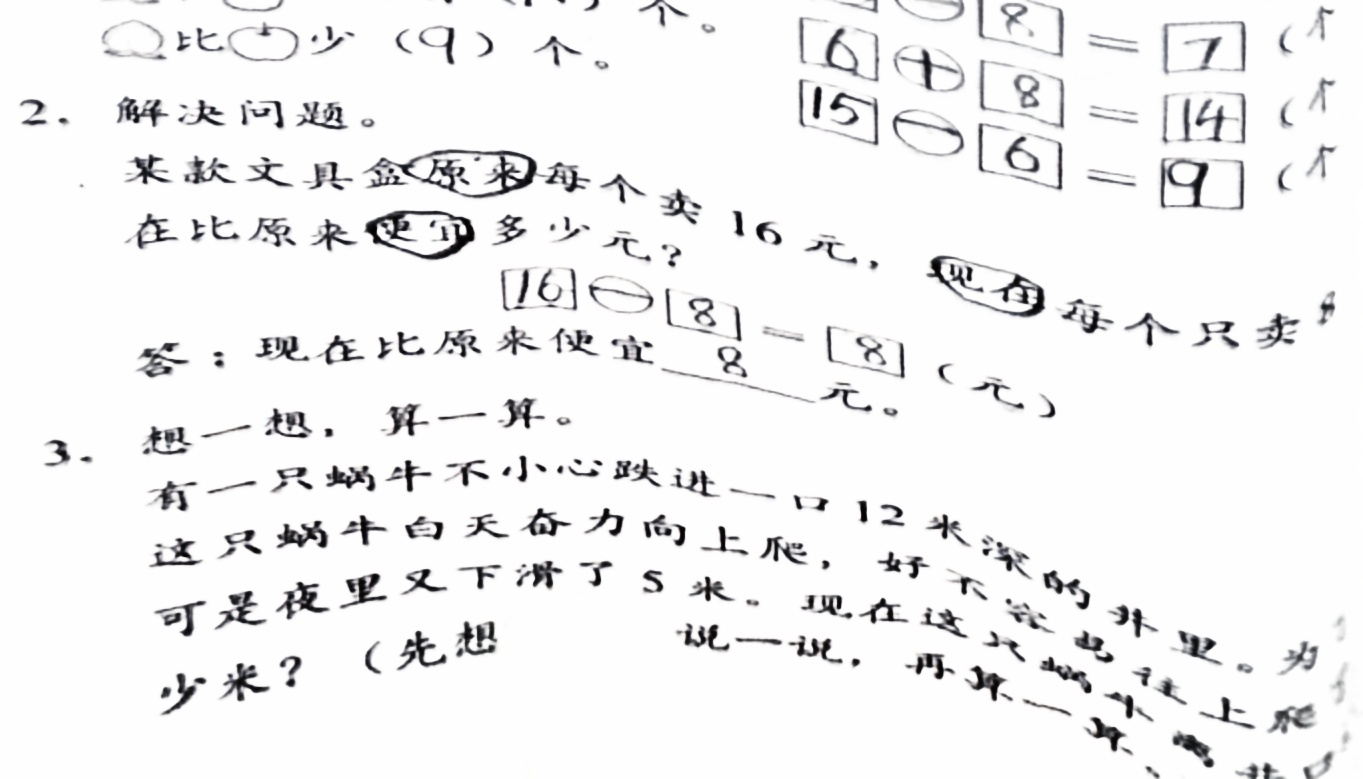 比 少（9）个。
8 = 7（个
6 + 8 = 14（个
15 － 6 = 9（个
2. 解决问题。
某款文具盒原来每个卖 16 元，现在每个只卖 8
在比原来便宜多少元？
16 － 8 = 8（元）
答：现在比原来便宜 8 元。
3. 想一想，算一算。
有一只蜗牛不小心跌进一口 12 米深的井里。为
这只蜗牛白天奋力向上爬，好不容易往上爬
可是夜里又下滑了 5 米。现在这只蜗牛离井口
少米？（先想 说一说，再算一算